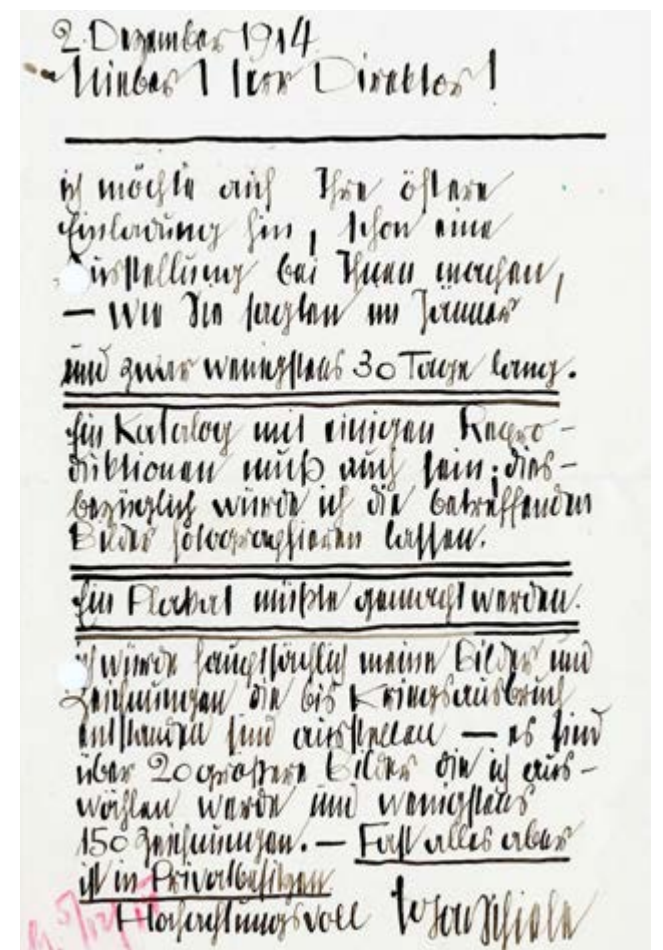 2. Dezember 1914.
Lieber Herr Direktor!
ich möchte auf Ihre öftere
Einladung hin, schon eine
Ausstellung bei Ihnen machen,
— wie Sie sagten im Jänner
und zwar wenigstens 30 Tage lang.
Ein Katalog mit einigen Repro-
duktionen muß auch sein; dies-
bezüglich würde ich die betreffenden
Bilder fotographieren lassen.
Ein Plakat müßte gemacht werden.
ich würde hauptsächlich meine Bilder und
Zeichnungen die bis Kriegsausbruch
entstanden sind ausstellen — es sind
über 20 größere Bilder die ich aus-
wählen werde und wenigstens
150 Zeichnungen. — Fast alles aber
ist in Privatbesitzen
Hochachtungsvoll Egon Schiele